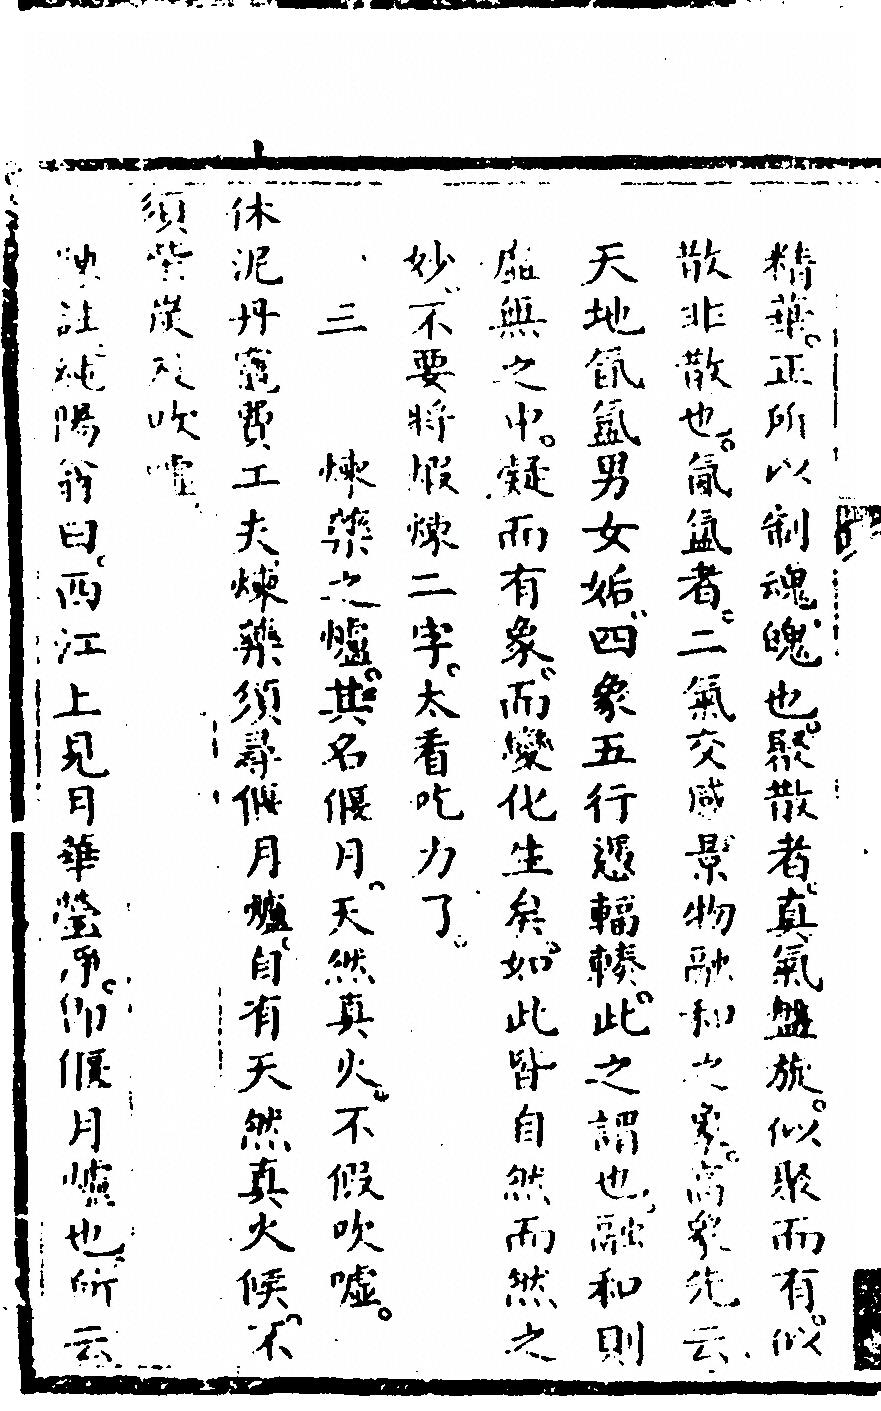 精華。正所以制魂魄也。聚散者。真氣盤旋。似聚而有。似
散非散也。氤氳者。二氣交感。景物融和之象。高象先云
天地氤氳男女姤。四象五行憑輻輳。此之謂也。融和則
虛無之中。凝而有象。而變化生矣。如此皆自然而然之
妙。不要將煅煉二字。太看吃力了。
三 煉藥之爐。其名偃月。天然真火。不假吹噓。
休泥丹竈費工夫煉藥須尋偃月爐。自有天然真火候。不
須柴炭及吹噓
陳註純陽翁曰。西江上見月華瑩淨。即偃月爐也。所云